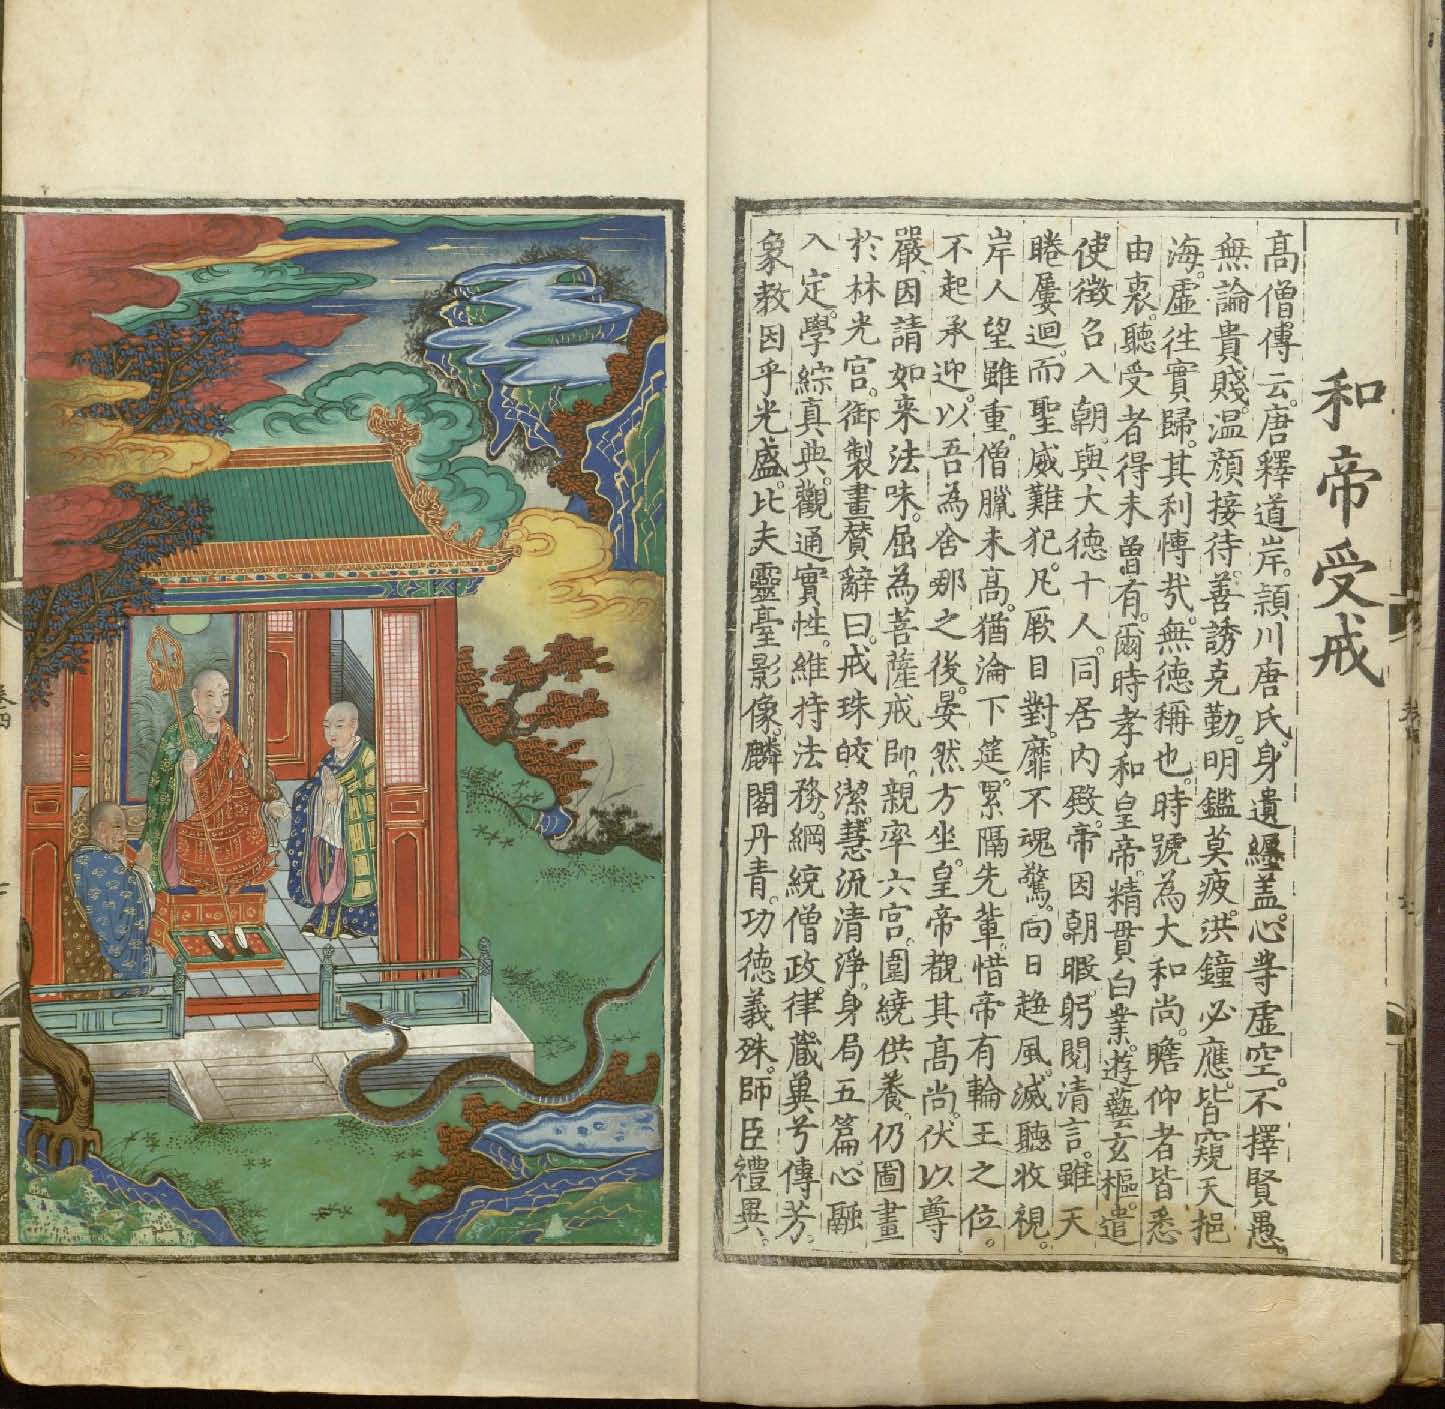 和帝受戒
高僧傳云。唐釋道岸。頴川唐氏。身遺纒盖。心等虛空。不擇賢愚。
無論貴賤。温顔接待。善誘克勤。明鑑莫疲。洪鐘必應。皆窺天挹
海。虛徃實歸。其利博㢤。無德稱也。時號為大和尚。瞻仰者皆悉
由衷。聽受者得未曾有。爾時孝和皇帝。精貫白業。遊藝玄樞。遣
使徵召入朝。與大德十人。同居内殿。帝因朝暇。躬閱清言。雖天
睠屢迴。而聖威難犯。凡厥目對。靡不魂驚。向日趍風。滅聽收視。
岸人望雖重。僧臘未高。猶淪下筵。累隔先輩。惜帝有輪王之位。
不起承迎。以吾為舍那之後。晏然方坐。皇帝覩其高尚。伏以尊
嚴。因請如來法味。屈為菩薩戒師。親率六宮。圍繞供養。仍圖畫
於林光宮。御製畫賛。辭曰。戒珠皎潔。慧流清淨。身局五篇。心融
入定。學綜真典。觀通實性。維持法務。綱統僧政。律蔵兾兮傳芳。
象教因乎光盛。比夫靈臺影像。麟閣丹青。功德義殊。師臣禮異。
卷四